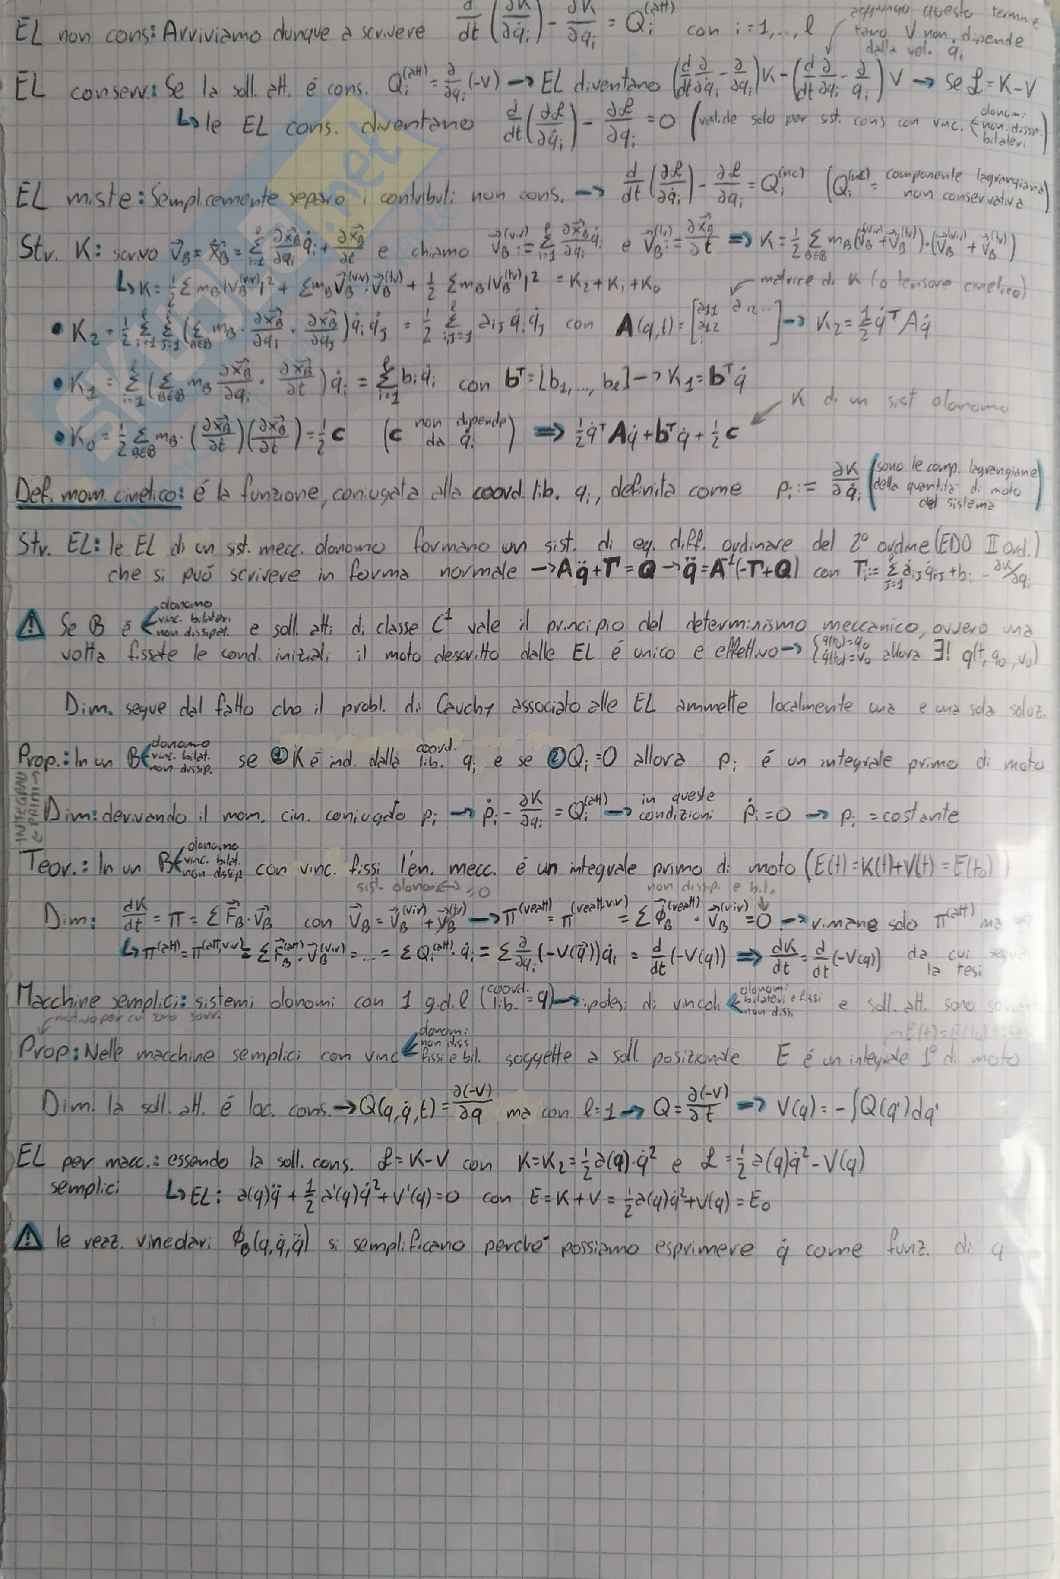 EL non cons: Arriviamo dunque a scrivere d/dt (∂K/∂q̇ᵢ) - ∂K/∂qᵢ = Qᵢ^(att) con i=1,...,l
aggiungo questo termine tanto V non dipende dalla vel. q̇ᵢ
EL conserv.: Se la soll. att. é cons. Qᵢ^(att) = ∂/∂qᵢ (-V) → EL diventano (d/dt ∂/∂q̇ᵢ - ∂/∂qᵢ)K - (d/dt ∂/∂q̇ᵢ - ∂/∂qᵢ)V → se ℒ = K-V
↳ le EL cons. diventano d/dt (∂ℒ/∂q̇ᵢ) - ∂ℒ/∂qᵢ = 0 (valide solo per sist. cons con vinc. olonomi non dissip. bilateri)
EL miste: Semplicemente separo i contributi non cons. → d/dt (∂ℒ/∂q̇ᵢ) - ∂ℒ/∂qᵢ = Qᵢ^(nc) (Qᵢ^(nc) = componente lagrangiana non conservativa)
Str. K: scrivo v⃗_B = ẋ⃗_B = Σ ∂x⃗_B/∂qᵢ q̇ᵢ + ∂x⃗_B/∂t e chiamo v⃗_B^(vir) := Σ ∂x⃗_B/∂qᵢ q̇ᵢ e v⃗_B^(tr) := ∂x⃗_B/∂t ⇒ K = 1/2 Σ_{B∈B} m_B (v⃗_B^(vir) + v⃗_B^(tr))·(v⃗_B^(vir) + v⃗_B^(tr))
↳ K = 1/2 Σ m_B |v_B^(vir)|² + Σ m_B v⃗_B^(vir)·v⃗_B^(tr) + 1/2 Σ m_B |v_B^(tr)|² = K₂ + K₁ + K₀
matrice di K (o tensore cinetico)
• K₂ = 1/2 Σ Σ (Σ_{B∈B} m_B · ∂x⃗_B/∂qᵢ · ∂x⃗_B/∂qⱼ) q̇ᵢ q̇ⱼ = 1/2 Σ aᵢⱼ q̇ᵢ q̇ⱼ con A(q,t) = [a₁₁ a₁₂... a₁₂] → K₂ = 1/2 q̇ᵀ A q̇
• K₁ = Σ (Σ_{B∈B} m_B ∂x⃗_B/∂qᵢ · ∂x⃗_B/∂t) q̇ᵢ = Σ bᵢ q̇ᵢ con bᵀ = [b₁,..., b_l] → K₁ = bᵀ q̇
K di un sist olonomo
• K₀ = 1/2 Σ_{B∈B} m_B · (∂x⃗_B/∂t)(∂x⃗_B/∂t) = 1/2 c (c non dipende da q̇ᵢ) ⇒ 1/2 q̇ᵀ A q̇ + bᵀ q̇ + 1/2 c
Def. mom. cinetico: é la funzione, coniugata alla coord. lib. qᵢ, definita come pᵢ := ∂K/∂q̇ᵢ (sono le comp. lagrangiane della quantità di moto del sistema)
Str. EL: le EL di un sist. mecc. olonomo formano un sist. di eq. diff. ordinarie del 2° ordine (EDO II ord.)
che si può scrivere in forma normale → A q̈ + Γ = Q → q̈ = A⁻¹(-Γ+Q) con Γᵢ := Σ ȧᵢⱼ q̇ⱼ + ḃᵢ - ∂K/∂qᵢ
⚠ Se B é olonomo vinc. bilateri non dissipat. e soll. atti. di classe C¹ vale il principio del determinismo meccanico, ovvero una
volta fissate le cond. iniziali il moto descritto dalle EL é unico e effettivo → {q(t₀)=q₀ q̇(t₀)=v₀ allora ∃! q(t,q₀,v₀)
Dim. segue dal fatto che il probl. di Cauchy associato alle EL ammette localmente una e una sola soluz.
INTEGRALI PRIMI
Prop.: In un B olonomo vinc. bilat. non dissip. se ① K é ind. dalla coord. lib. qᵢ e se ② Qᵢ=0 allora pᵢ é un integrale primo di moto
Dim: derivando il mom. cin. coniugato pᵢ → ṗᵢ - ∂K/∂qᵢ = Qᵢ^(att) → in queste condizioni ṗᵢ=0 → pᵢ = costante
Teor.: In un B olonomo vinc. bilat. non dissip. con vinc. fissi l'en. mecc. é un integrale primo di moto (E(t) = K(t)+V(t) = E(t₀))
sist. olonomo =0 non dissip. e bil.
Dim: dK/dt = Π = Σ F⃗_B·v⃗_B con v⃗_B = v⃗_B^(vir) + v⃗_B^(tr) → Π^(reatt) = Π^(reatt,vir) = Σ Φ⃗_B^(reatt)·v⃗_B^(vir) = 0 → rimane solo Π^(att) ma
↳ Π^(att) = Π^(att,vir) = Σ F⃗_B^(att)·v⃗_B^(vir) = ... = Σ Qᵢ^(att)·q̇ᵢ = Σ ∂/∂qᵢ (-V(q⃗)) q̇ᵢ = d/dt (-V(q)) ⇒ dK/dt = d/dt (-V(q)) da cui segue la tesi
Macchine semplici: sistemi olonomi con 1 g.d.l (coord. lib. = q) → ipotesi di vincoli olonomi bilateri e fissi non diss. e soll. att. sono
motivo per cui sono
Prop: Nelle macchine semplici con vinc olonomi non diss fissi e bil. soggette a soll. posizionale E é un integrale 1° di moto
Dim. la soll. att. é loc. cons. → Q(q,q̇,t) = ∂(-V)/∂q ma con l=1 → Q = ∂(-V)/∂t ⇒ V(q) = -∫Q(q')dq'
EL per macc.: essendo la soll. cons. ℒ = K-V con K=K₂ = 1/2 a(q)·q̇² e ℒ = 1/2 a(q)q̇² - V(q)
semplici ↳ EL: a(q)q̈ + 1/2 a'(q)q̇² + V'(q) = 0 con E = K+V = 1/2 a(q)q̇² + V(q) = E₀
⚠ le reaz. vincolari Φ_B(q,q̇,q̈) si semplificano perché possiamo esprimere q̇ come funz. di q